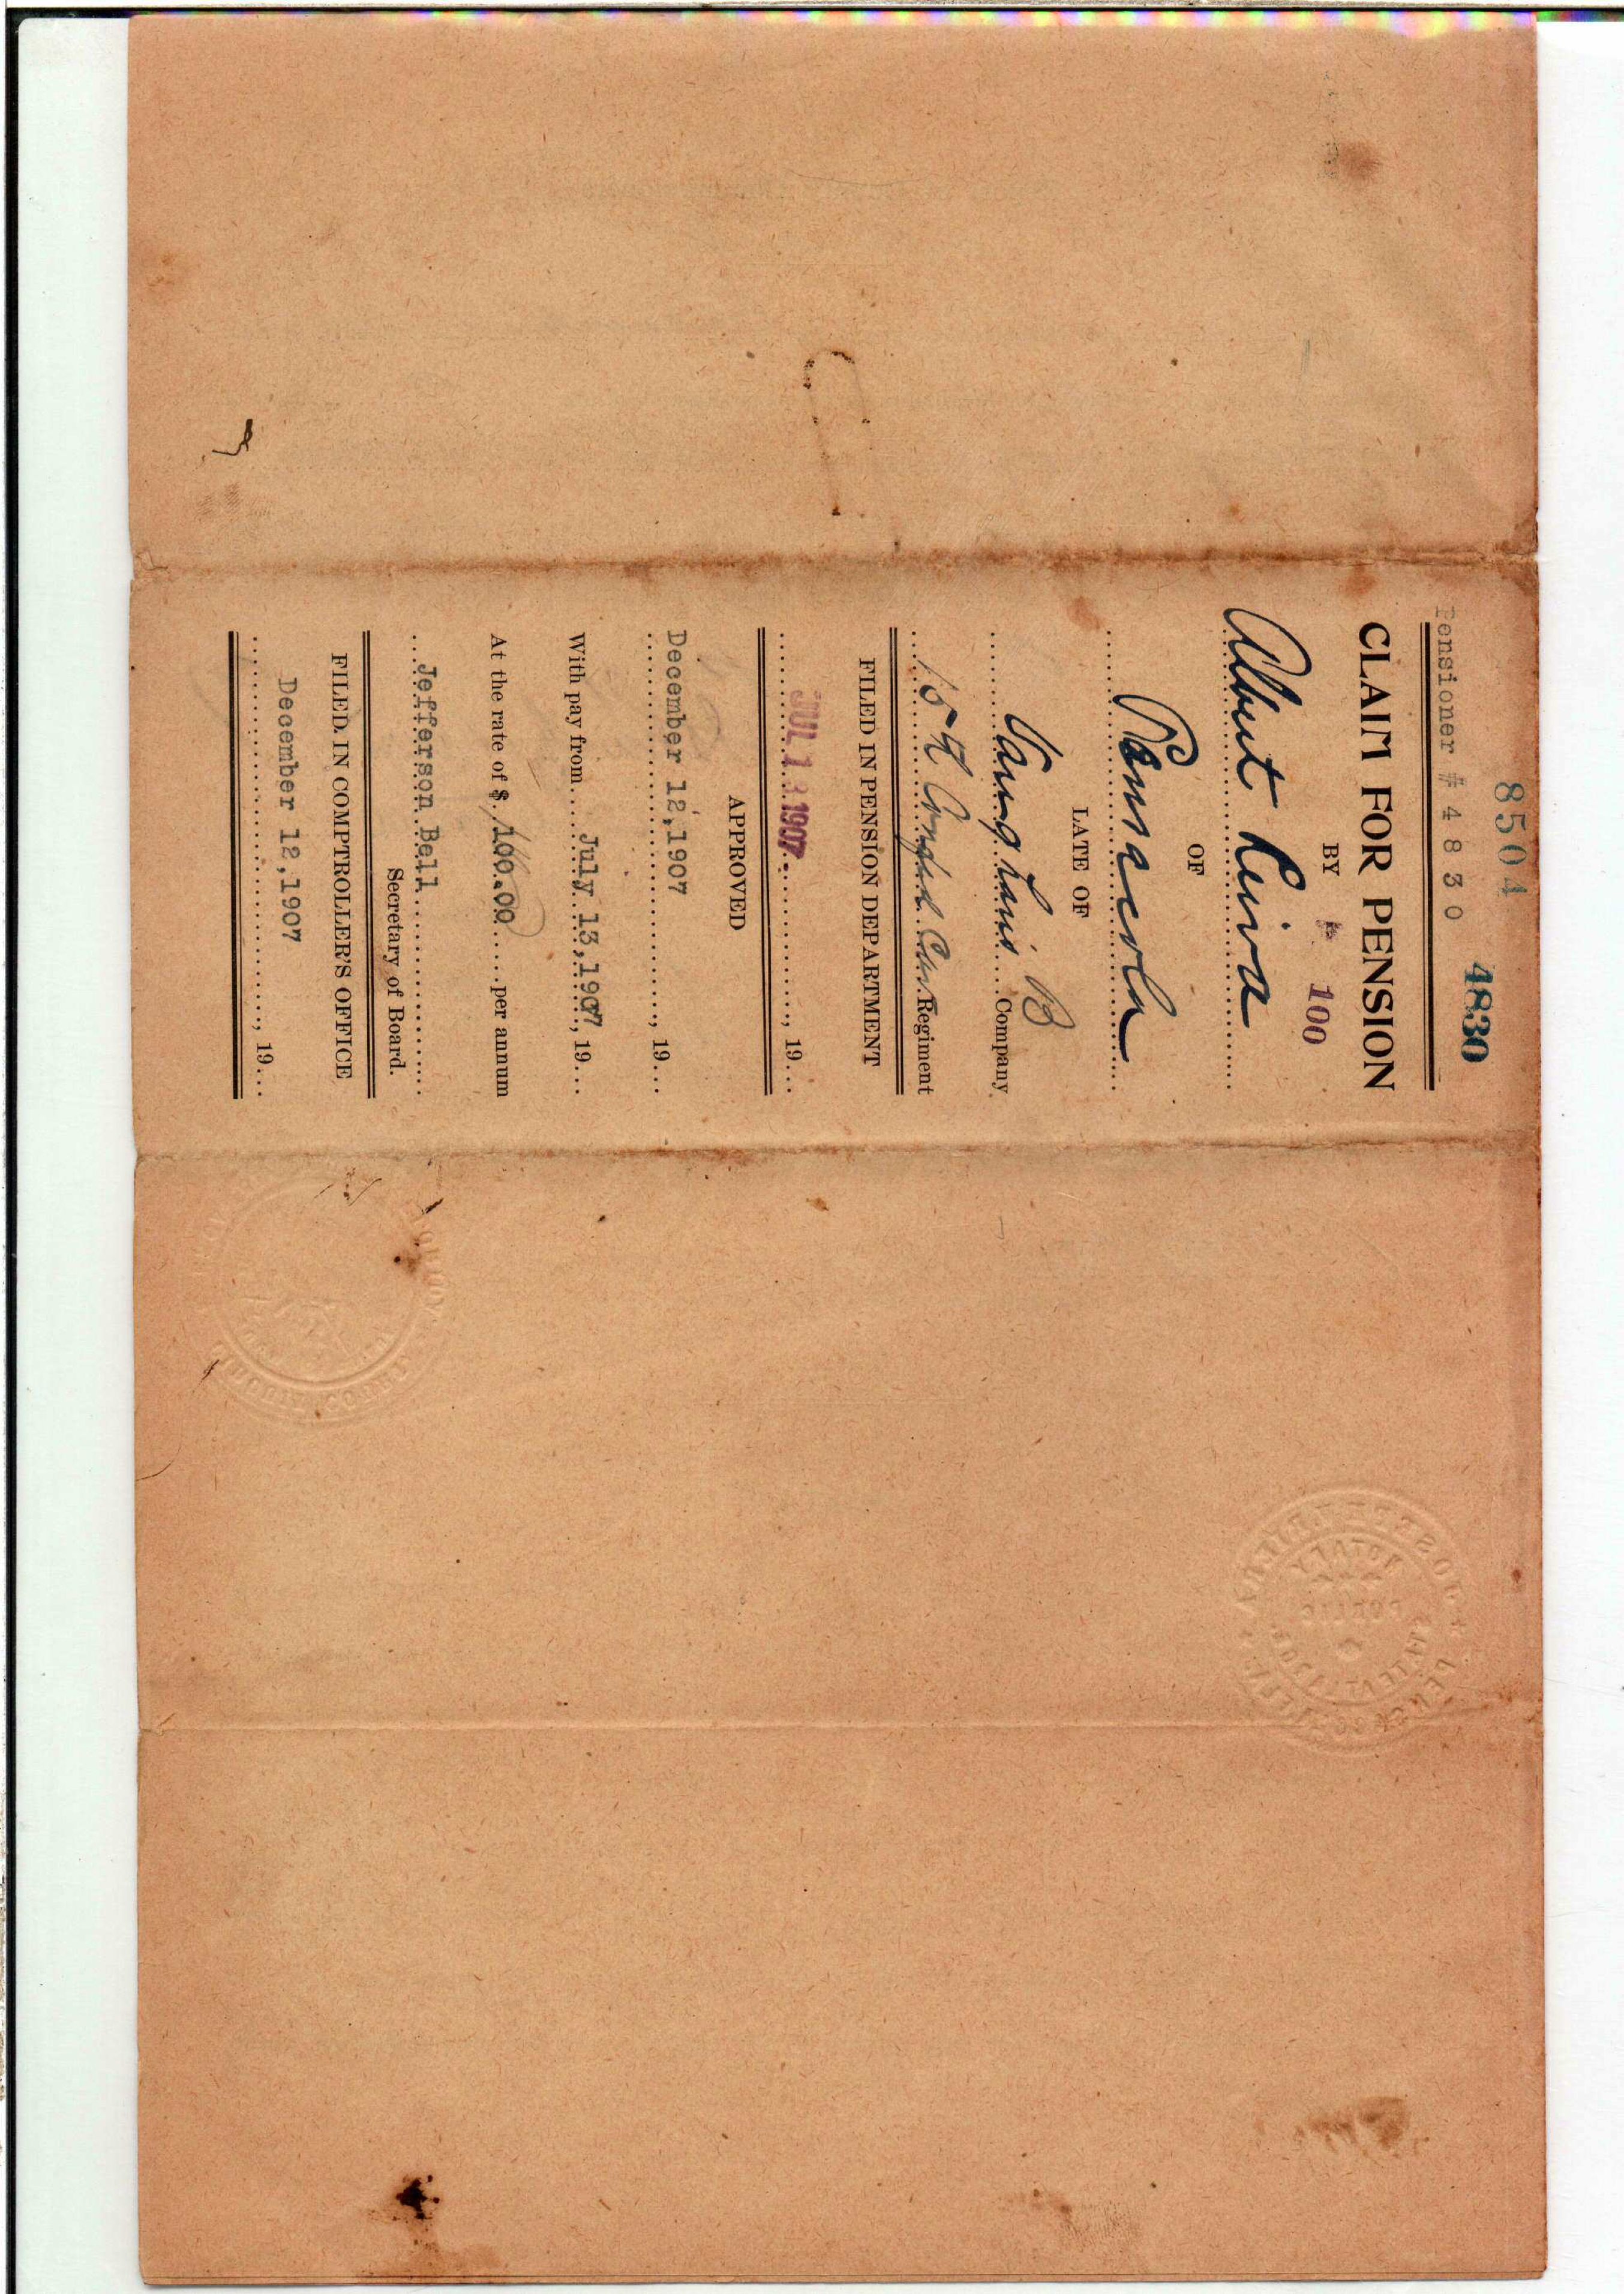 8504
4830
Pensioner # 4830
CLAIM FOR PENSION
BY
100
Albert Leiva
OF
Pensacola
LATE OF
B
Vaughans Company
15th Confed Cav Regiment
FILED IN PENSION DEPARTMENT
JUL 13 1907 , 19
APPROVED
December 12, 1907
, 19
With pay from July 13, 1907, 19
At the rate of $ 100.00 per annum
Jefferson Bell
Secretary of Board.
FILED IN COMPTROLLER'S OFFICE
December 12, 1907
, 19
NOTARY
PUBLIC